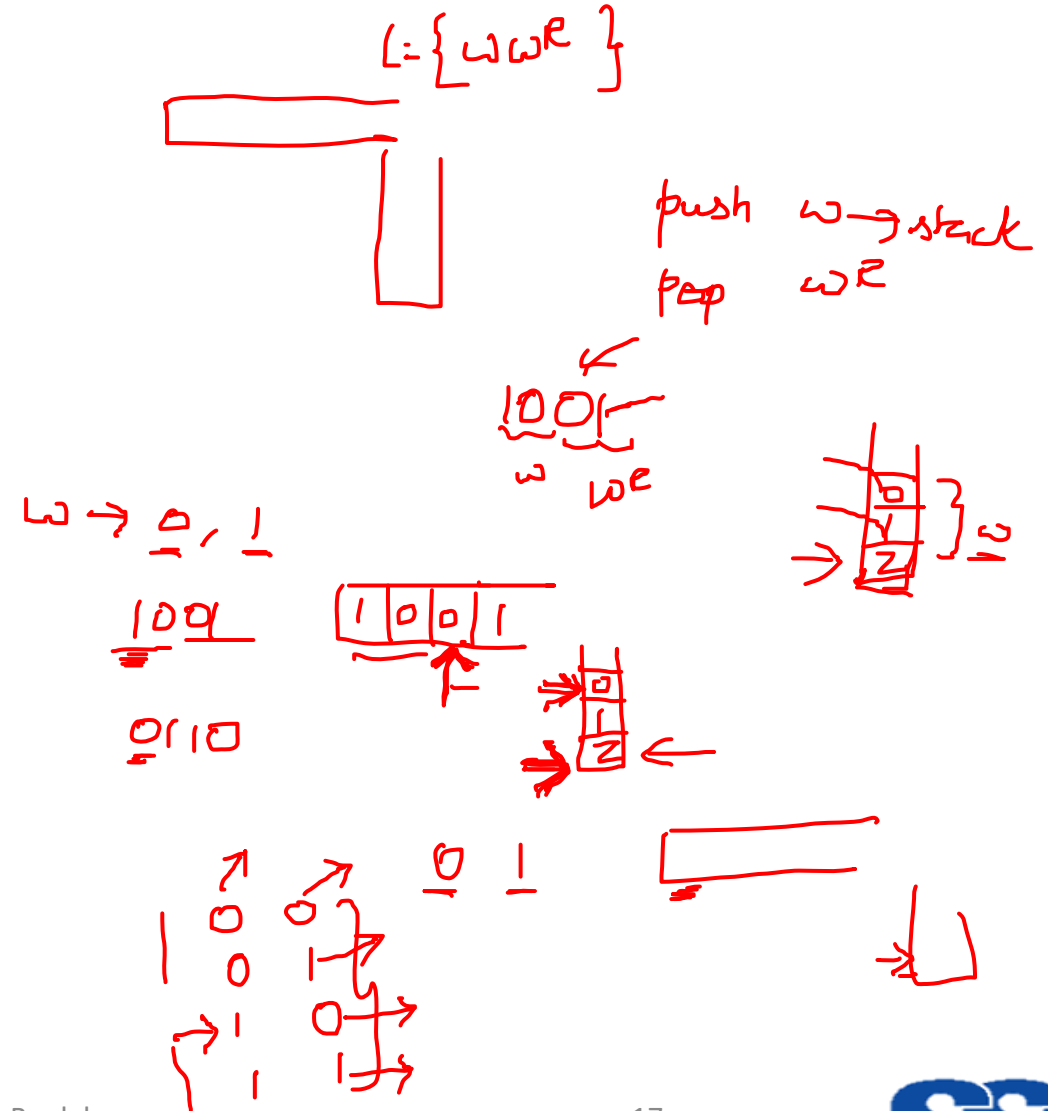 L = { ωω^R }
push ω → stack
pop ω^R
1001
ω ω^R
ω → 0, 1
0
1
Z
ω
1001
1 0 0 1
0110
0
1
Z
0 1
0 0
0 1
1 0
1 1
17